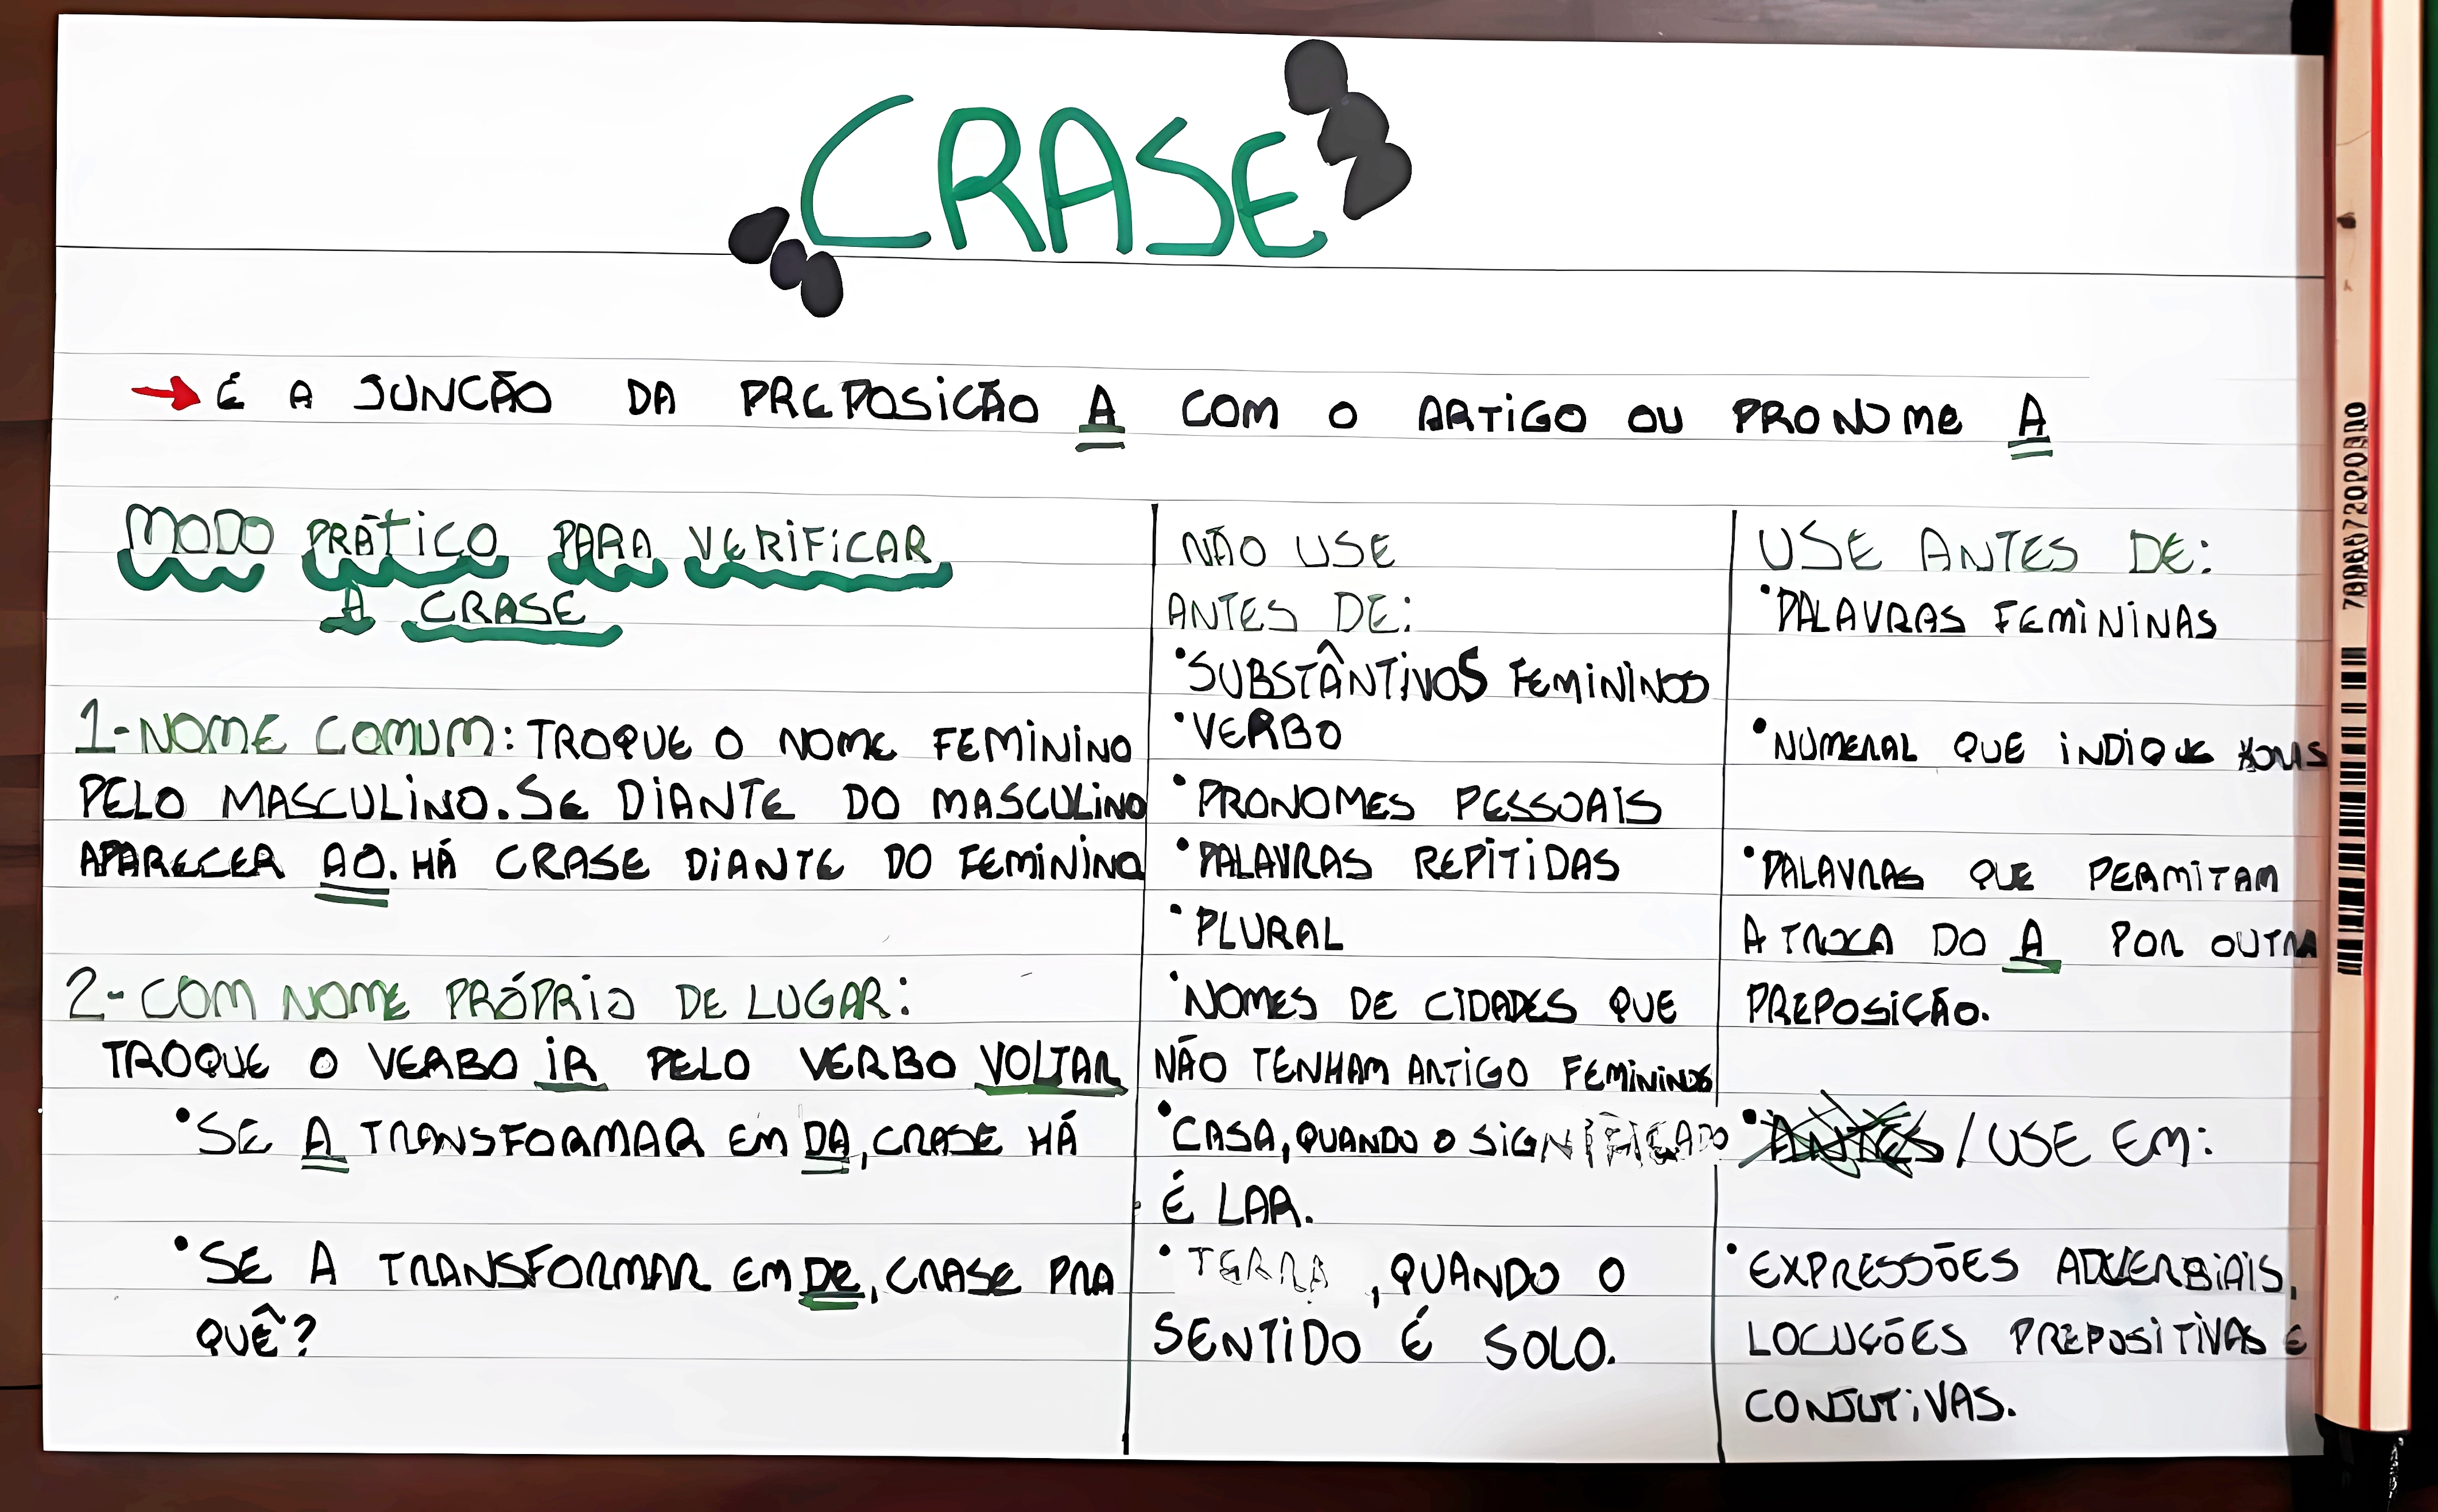 CRASE
→ É A JUNCÃO DA PREPOSICÃO A COM O ARTIGO OU PRONOME A
MODO PRÁTICO PARA VERIFICAR
A CRASE
1-NOME COMUM: TROQUE O NOME FEMININO
PELO MASCULINO. SE DIANTE DO MASCULINO
APARECER AO. HÁ CRASE DIANTE DO FEMININO
2-COM NOME PRÓPRIO DE LUGAR:
TROQUE O VERBO IR PELO VERBO VOLTAR
•SE A TRANSFORMAR EM DA, CRASE HÁ
•SE A TRANSFORMAR EM DE, CRASE PRA
QUÊ?
NÃO USE
ANTES DE:
•SUBSTÂNTIVOS FEMININOS
•VERBO
•PRONOMES PESSOAIS
•PALAVRAS REPITIDAS
•PLURAL
•NOMES DE CIDADES QUE
NÃO TENHAM ARTIGO FEMININOS
•CASA, QUANDO O SIGNIFICADO
É LAR.
•TERRA, QUANDO O
SENTIDO É SOLO.
USE ANTES DE:
•PALAVRAS FEMININAS
•NUMERAL QUE INDIQUE HORAS
•PALAVRAS QUE PERMITAM
A TROCA DO A POR OUTRA
PREPOSIÇÃO.
•ANTES /USE EM:
•EXPRESSÕES ADVERBIAIS,
LOCUÇÕES PREPOSITIVAS E
CONJUTIVAS.